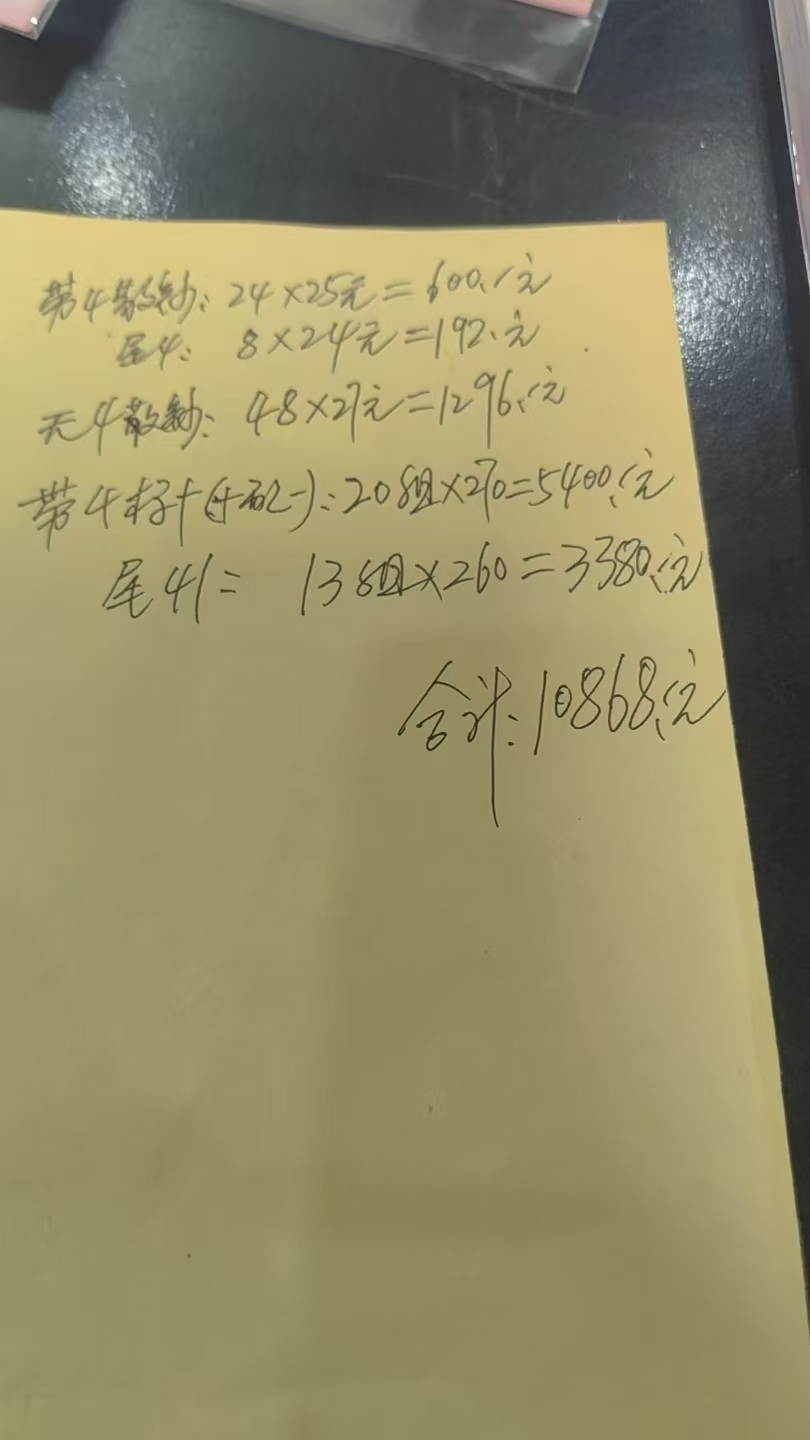 带4散钞: 24×25元=600.元
尾4: 8×24元=192.元
无4散钞: 48×27元=1296.元
带4标十(十配一): 20组×270=5400.元
尾4 = 13组×260=3380.元
合计: 10868.元